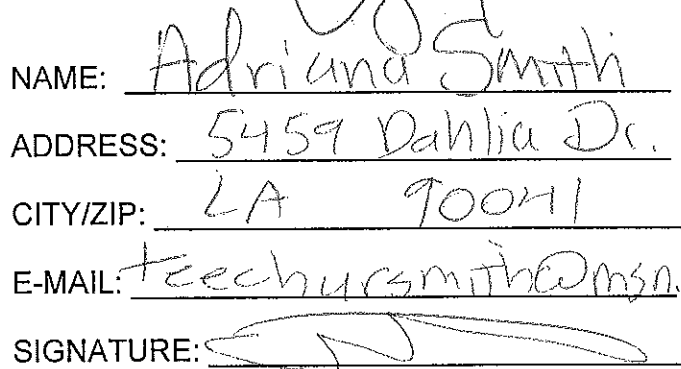 NAME: Adriana Smith
ADDRESS: 5459 Dahlia Dr.
CITY/ZIP: LA 90041
E-MAIL: teechursmith@msn.
SIGNATURE: